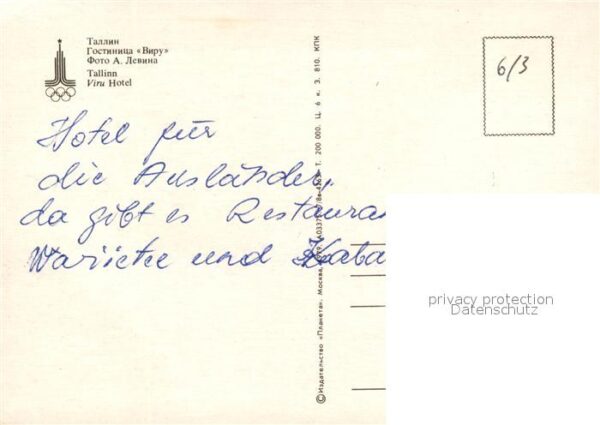 Таллин
Гостиница «Виру»
Фото А. Левина
Tallinn
Viru Hotel
Hotel für
die Ausländer,
da gibt es Restaura
Wariete und Kaba
© Издательство «Планета». Москва, 1979
Т. 200 000. Ц. 6 к. З. 810. КПК
6/3
privacy protection
Datenschutz